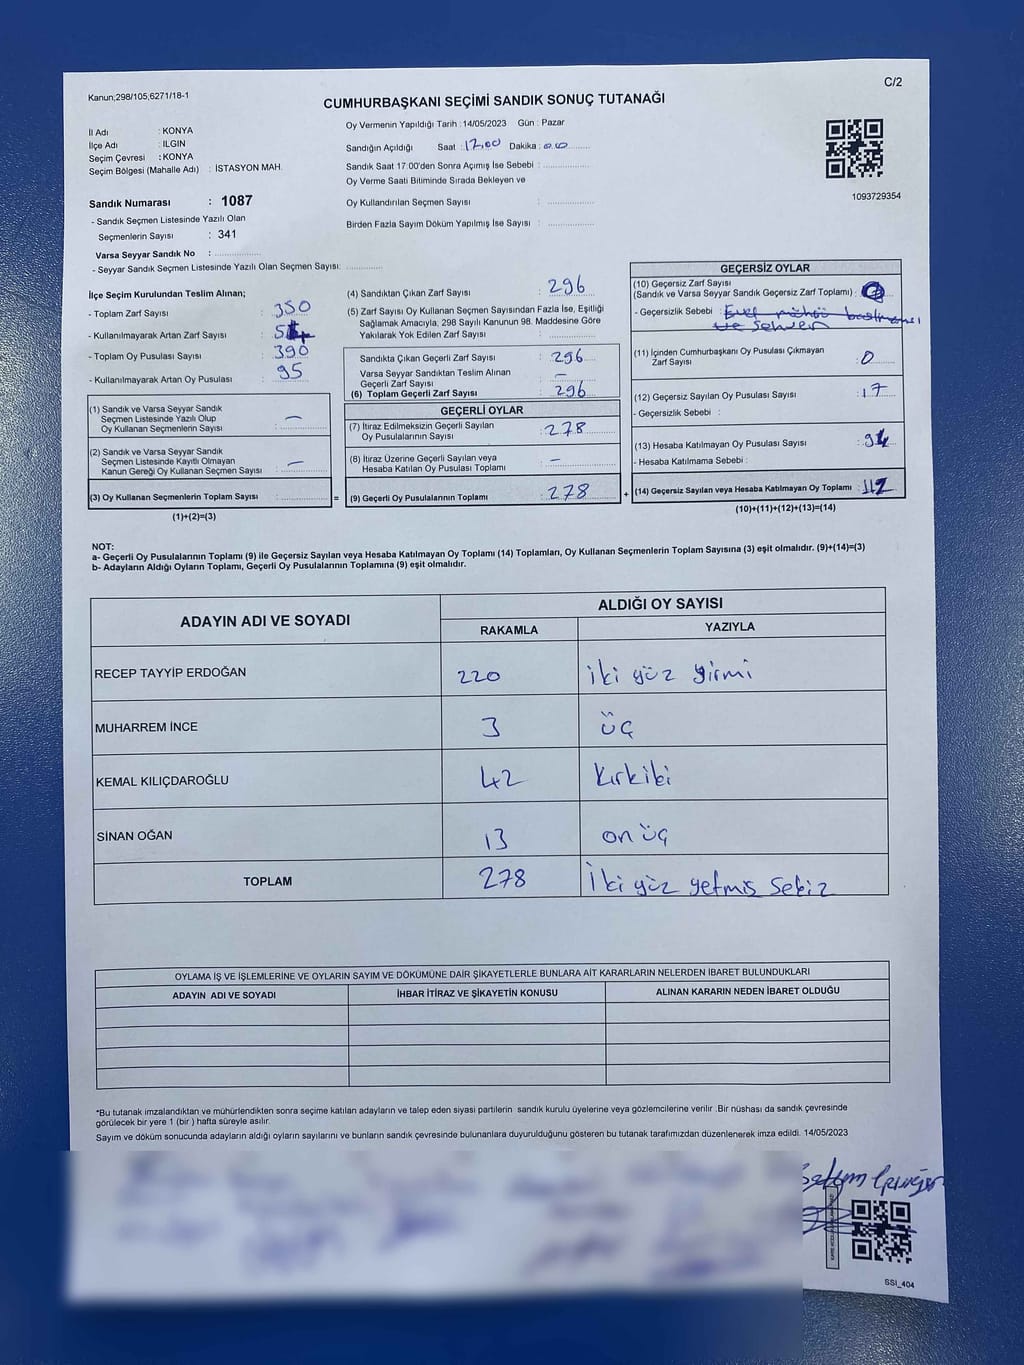 Kanun;298/105,6271/18-1
C/2
CUMHURBAŞKANI SEÇİMİ SANDIK SONUÇ TUTANAĞI
İl Adı : KONYA
İlçe Adı : ILGIN
Seçim Çevresi : KONYA
Seçim Bölgesi (Mahalle Adı) : İSTASYON MAH.
Sandık Numarası : 1087
- Sandık Seçmen Listesinde Yazılı Olan
Seçmenlerin Sayısı : 341
Varsa Seyyar Sandık No :
- Seyyar Sandık Seçmen Listesinde Yazılı Olan Seçmen Sayısı:
Oy Vermenin Yapıldığı Tarih : 14/05/2023 Gün : Pazar
Sandığın Açıldığı Saat : 17.00 Dakika : 00
Sandık Saat 17.00'den Sonra Açımış İse Sebebi :
Oy Verme Saati Bitiminde Sırada Bekleyen ve
Oy Kullandırılan Seçmen Sayısı :
Birden Fazla Sayım Döküm Yapılmış İse Sayısı :
1093729354
İlçe Seçim Kurulundan Teslim Alınan;
- Toplam Zarf Sayısı : 350
- Kullanılmayarak Artan Zarf Sayısı :
- Toplam Oy Pusulası Sayısı : 390
- Kullanılmayarak Artan Oy Pusulası : 95
(1) Sandık ve Varsa Seyyar Sandık
Seçmen Listesinde Yazılı Olup
Oy Kullanan Seçmenlerin Sayısı : —
(2) Sandık ve Varsa Seyyar Sandık
Seçmen Listesinde Kayıtlı Olmayan
Kanun Gereği Oy Kullanan Seçmen Sayısı : —
(3) Oy Kullanan Seçmenlerin Toplam Sayısı : =
(1)+(2)=(3)
(4) Sandıktan Çıkan Zarf Sayısı : 296
(5) Zarf Sayısı Oy Kullanan Seçmen Sayısından Fazla İse, Eşitliği
Sağlamak Amacıyla, 298 Sayılı Kanunun 98. Maddesine Göre
Yakılarak Yok Edilen Zarf Sayısı :
Sandıkta Çıkan Geçerli Zarf Sayısı : 296
Varsa Seyyar Sandıktan Teslim Alınan
Geçerli Zarf Sayısı : —
(6) Toplam Geçerli Zarf Sayısı : 296
GEÇERLİ OYLAR
(7) İtiraz Edilmeksizin Geçerli Sayılan
Oy Pusulalarının Sayısı : 278
(8) İtiraz Üzerine Geçerli Sayılan veya
Hesaba Katılan Oy Pusulası Toplamı : —
(9) Geçerli Oy Pusulalarının Toplamı : 278 +
GEÇERSİZ OYLAR
(10) Geçersiz Zarf Sayısı
(Sandık ve Varsa Seyyar Sandık Geçersiz Zarf Toplamı) :
- Geçersizlik Sebebi :
(11) İçinden Cumhurbaşkanı Oy Pusulası Çıkmayan
Zarf Sayısı : 0
(12) Geçersiz Sayılan Oy Pusulası Sayısı : 17
- Geçersizlik Sebebi :
(13) Hesaba Katılmayan Oy Pusulası Sayısı :
- Hesaba Katılmama Sebebi :
(14) Geçersiz Sayılan veya Hesaba Katılmayan Oy Toplamı : 112
(10)+(11)+(12)+(13)=(14)
NOT:
a- Geçerli Oy Pusulalarının Toplamı (9) ile Geçersiz Sayılan veya Hesaba Katılmayan Oy Toplamı (14) Toplamları, Oy Kullanan Seçmenlerin Toplam Sayısına (3) eşit olmalıdır. (9)+(14)=(3)
b- Adayların Aldığı Oyların Toplamı, Geçerli Oy Pusulalarının Toplamına (9) eşit olmalıdır.
ADAYIN ADI VE SOYADI ALDIĞI OY SAYISI
RAKAMLA YAZIYLA
RECEP TAYYİP ERDOĞAN 220 iki yüz yirmi
MUHARREM İNCE 3 üç
KEMAL KILIÇDAROĞLU 42 kırkiki
SİNAN OĞAN 13 on üç
TOPLAM 278 İki yüz yetmiş sekiz
OYLAMA İŞ VE İŞLEMLERİNE VE OYLARIN SAYIM VE DÖKÜMÜNE DAİR ŞİKAYETLERLE BUNLARA AİT KARARLARIN NELERDEN İBARET BULUNDUKLARI
ADAYIN ADI VE SOYADI İHBAR İTİRAZ VE ŞİKAYETİN KONUSU ALINAN KARARIN NEDEN İBARET OLDUĞU
*Bu tutanak imzalandıktan ve mühürlendikten sonra seçime katılan adayların ve talep eden siyasi partilerin sandık kurulu üyelerine veya gözlemcilerine verilir .Bir nüshası da sandık çevresinde
görülecek bir yere 1 (bir ) hafta süreyle asılır.
Sayım ve döküm sonucunda adayların aldığı oyların sayılarını ve bunların sandık çevresinde bulunanlara duyurulduğunu gösteren bu tutanak tarafımızdan düzenlenerek imza edildi. 14/05/2023
SSI_404